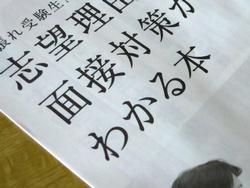 張れ受験生
志望理由
面接対策が
わかる本